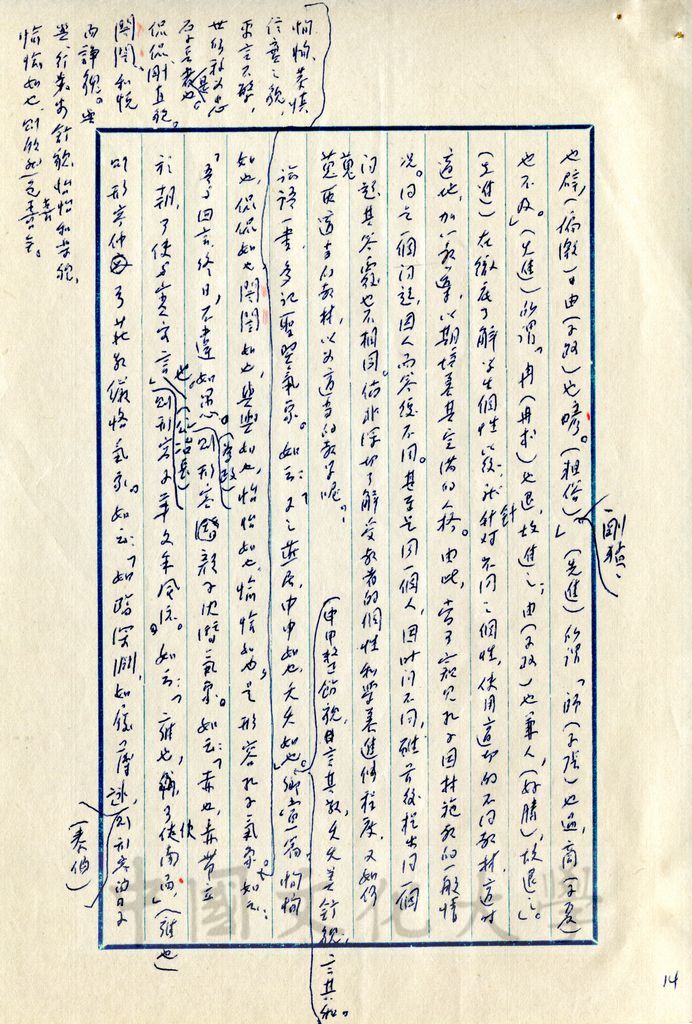 也辟，(偏激)由(子路)也喭。(粗俗)」(先進)所謂「師(子張)也過，商(子夏)
剛猛、
也不及」。(先進)所謂「冉(冉求)也退，故進之；由(子路)也兼人，(好勝)故退之。
(先進)在徹底了解學生個性以後，就針對不同之個性，使用適切的不同教材，適時
適地，加以教導，以期培養其完滿的人格。由此，當可窺見孔子因材施教的一般情
況。同是一個問題，因人而答復不同。甚至是同一個人，因時間不同，雖前後提出同一個
問題，其答覆也不相同。倘非深切了解受教者的個性和學養進修程度，又如何
蒐取適當的教材，以為適當的教學呢？
論語一書，多記聖賢氣象。如云：「子之燕居，申申如也，夭夭如也」。鄉黨一篇，恂恂
(申申整飭貌，言其敬，夭夭美舒貌，言其和。
如也，侃侃如也，誾誾如也，與與如也，怡怡如也，愉愉如也，是形容孔子氣象。如云：
「吾與回言終日，不違如愚。」(為政)則形容顏子沈潛氣象。如云：「赤也，束帶立
於朝，可使與賓客言也」(公冶長)則形容子華文采風流。如云：「雍也，可使南面，」(雍也)
則形容仲弓莊敬嚴恪氣象。如云：「如臨深淵，如履薄冰，」(泰伯)則形容曾子
恂恂，恭慎
信實之貌，
侃侃剛直貌。
誾誾，和悅
而諍貌。與
與行步安舒貌，怡怡和樂貌，
14
中國文化大學